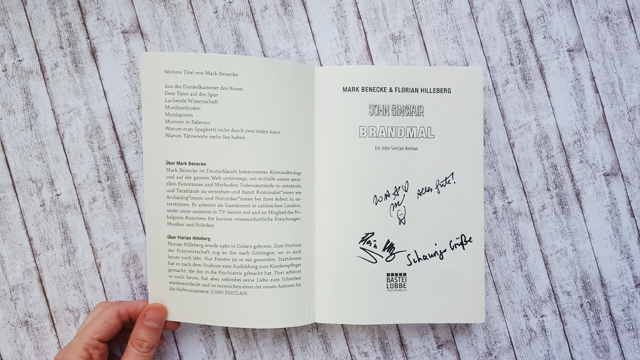 Weitere Titel von Mark Benecke
Aus der Dunkelkammer des Bösen
Dem Täter auf der Spur
Lachende Wissenschaft
Mordmethoden
Mordspuren
Mumien in Palermo
Warum man Spaghetti nicht durch zwei teilen kann
Warum Tätowierte mehr Sex haben
Über Mark Benecke
Mark Benecke ist Deutschlands bekanntester Kriminalbiologe
und auf der ganzen Welt unterwegs, um mithilfe seiner spezi-
ellen Kenntnisse und Methoden Todesumstände zu enträtseln
und Tatabläufe zu verstehen und damit Kriminalist*innen wie
Archäolog*innen und Historiker*innen bei ihrer Arbeit zu un-
terstützen. Er arbeitet als Gastdozent in zahlreichen Ländern,
wirkt unter anderem in TV-Serien mit und ist Mitglied des No-
belpreis-Komitees für kuriose wissenschaftliche Forschungen,
Musiker und Politiker.
Über Florian Hilleberg
Florian Hilleberg wurde 1980 in Uelzen geboren. Zum Studium
der Forstwirtschaft zog es ihn nach Göttingen, wo er auch
heute noch lebt. Nur Förster ist er nie geworden. Stattdessen
hat er nach dem Studium eine Ausbildung zum Krankenpfleger
gemacht, die ihn in die Psychiatrie gebracht hat. Dort arbeitet
er noch heute, hat aber nebenbei seine Liebe zum Schreiben
wiederentdeckt und ist inzwischen einer der neuen Autoren für
die Heftromanserie JOHN SINCLAIR.
MARK BENECKE & FLORIAN HILLEBERG
JOHN SINCLAIR
BRANDMAL
Ein John Sinclair Roman
Alles Gute!
Schaurige Grüße
BASTEI
LÜBBE